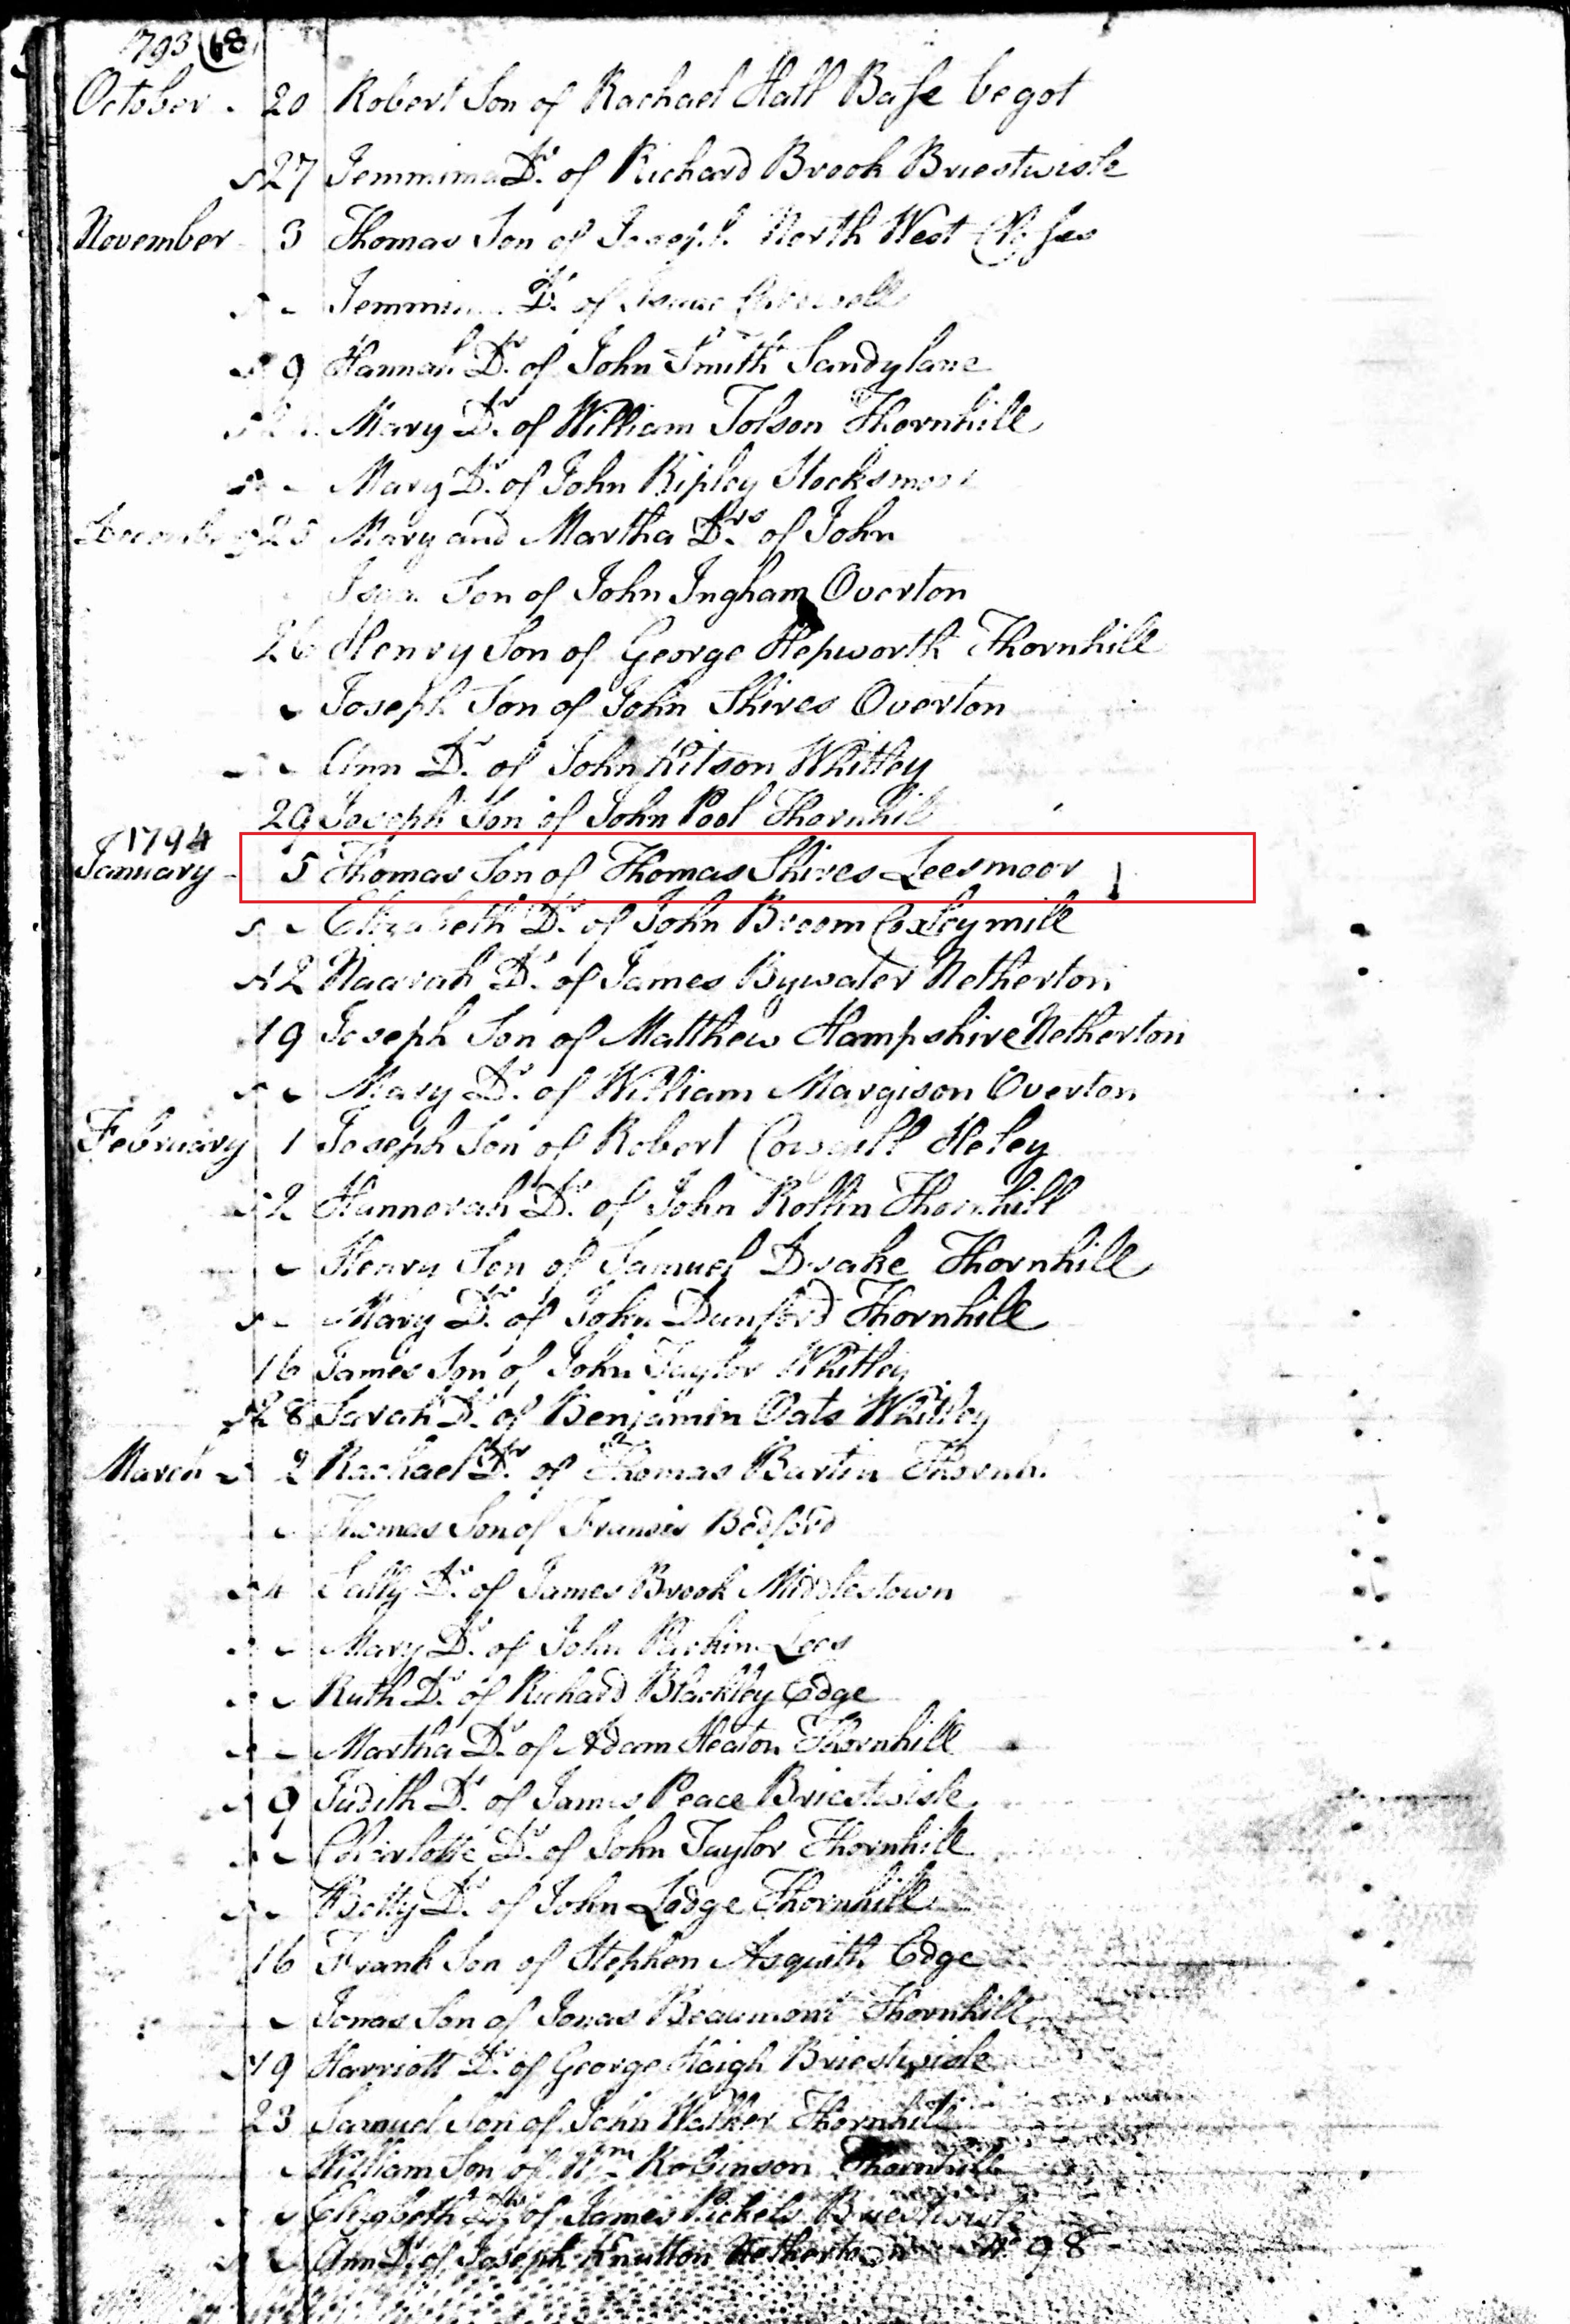 1793 (68)
October . 20 Robert Son of Rachael Hall Base begot
27 Jemmima Dr. of Richard Brook Briestwisle
November 3 Thomas Son of Joseph North West Closes
Dr. of Isaac
9 Hannah Dr. of John Smith Sandylane
Mary Dr. of William Tolson Thornhill
Mary Dr. of John Ripley Stocksmoor
December 25 Mary and Martha Drs. of John
Son of John Ingham Overton
26 Henry Son of George Hepworth Thornhill
Joseph Son of John Shires Overton
Ann Dr. of John Kitson Whitley
29 Joseph Son of John Pool Thornhill
1794
January - 5 Thomas Son of Thomas Shires Leesmoor
Elizabeth Dr. of John Broom Coxleymill
12 Naarah Dr. of James Bywater Netherton
19 Joseph Son of Matthew Hampshire Netherton
Mary Dr. of William Margison Overton
February 1 Joseph Son of Robert Cowgill Heley
2 Hannorah Dr. of John Rollin Thornhill
Henry Son of Samuel Drake Thornhill
Mary Dr. of John Dunford Thornhill
16 James Son of John Taylor Whitley
28 Sarah Dr. of Benjamin Oats Whitley
March 2 Rachael Dr. of Thomas Bartin Thornh.
Thomas Son of Francis Bedford
4 Sally Dr. of James Brook Middlestown
Mary Dr. of John Parkin Lees
Ruth Dr. of Richard Blackley Edge
Martha Dr. of Adam Heaton Thornhill
9 Judith Dr. of James Peace Briestwisle
Charlotte Dr. of John Taylor Thornhill
Betty Dr. of John Lodge Thornhill
16 Frank Son of Stephen Asquith Edge
Jonas Son of Jonas Beaumont Thornhill
19 Harriott Dr. of George Haigh Briestwisle
23 Samuel Son of John Walker Thornhill
William Son of Wm. Robinson Thornhill
Elizabeth Dr. of James Pickels Briestwisle
Ann Dr. of Joseph Knutton Netherton No 98